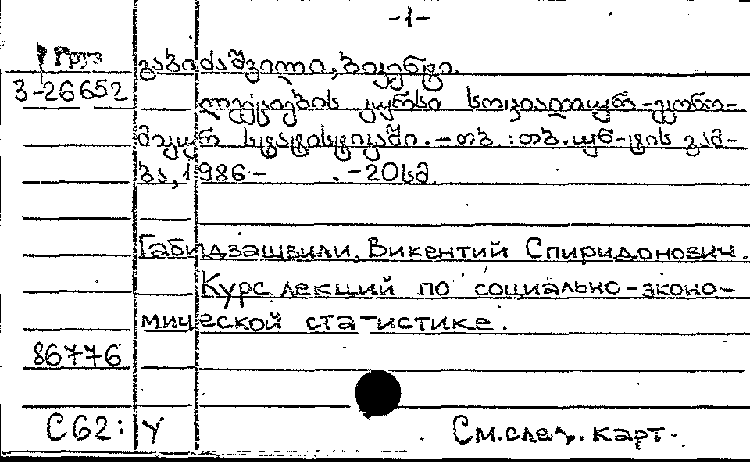 -1-
Груз
3-26652
გაბიძაშვილი, ბიკენტი.
ლექციების კურსი სოციალურ-ეკონო-
მიკურ სტატისტიკაში. - თბ. : თბ. უნ-ტის გამ-
ბა, 1986 - . - 20სმ
Габидзашвили, Викентий Спиридонович.
Курс лекций по социально-эконо-
мической статистике.
86776
C62: У
См. след. карт.